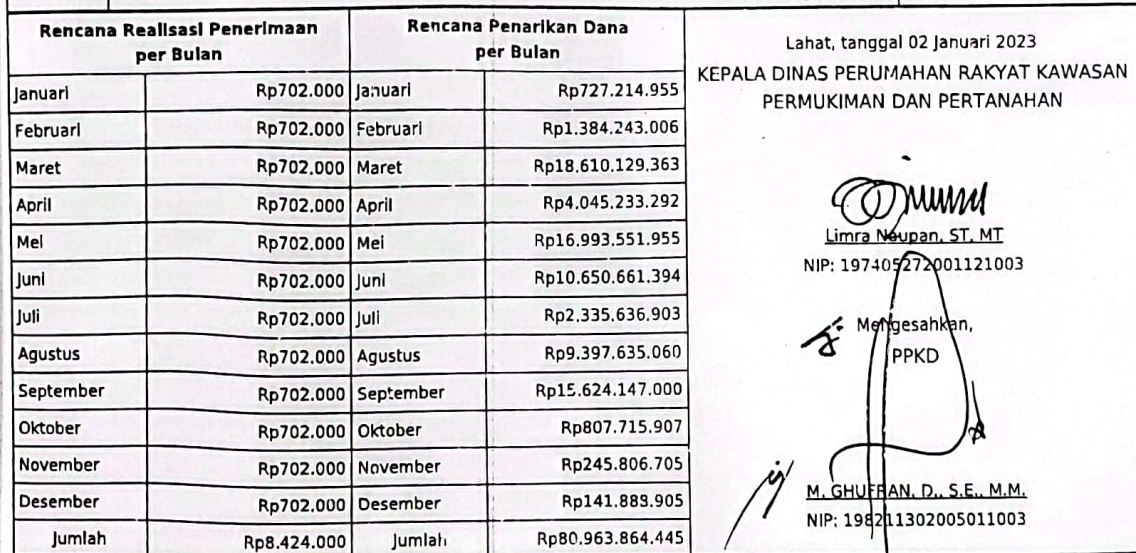 Rencana Realisasi Penerimaan per Bulan
Rencana Penarikan Dana per Bulan
Januari Rp702.000 Januari Rp727.214.955
Februari Rp702.000 Februari Rp1.384.243.006
Maret Rp702.000 Maret Rp18.610.129.363
April Rp702.000 April Rp4.045.233.292
Mei Rp702.000 Mei Rp16.993.551.955
Juni Rp702.000 Juni Rp10.650.661.394
Juli Rp702.000 Juli Rp2.335.636.903
Agustus Rp702.000 Agustus Rp9.397.635.060
September Rp702.000 September Rp15.624.147.000
Oktober Rp702.000 Oktober Rp807.715.907
November Rp702.000 November Rp245.806.705
Desember Rp702.000 Desember Rp141.889.905
Jumlah Rp8.424.000 Jumlah Rp80.963.864.445
Lahat, tanggal 02 Januari 2023
KEPALA DINAS PERUMAHAN RAKYAT KAWASAN
PERMUKIMAN DAN PERTANAHAN
Limra Naupan, ST, MT
NIP: 197405272001121003
Mengesahkan,
PPKD
M. GHUFRAN, D., S.E., M.M.
NIP: 198211302005011003